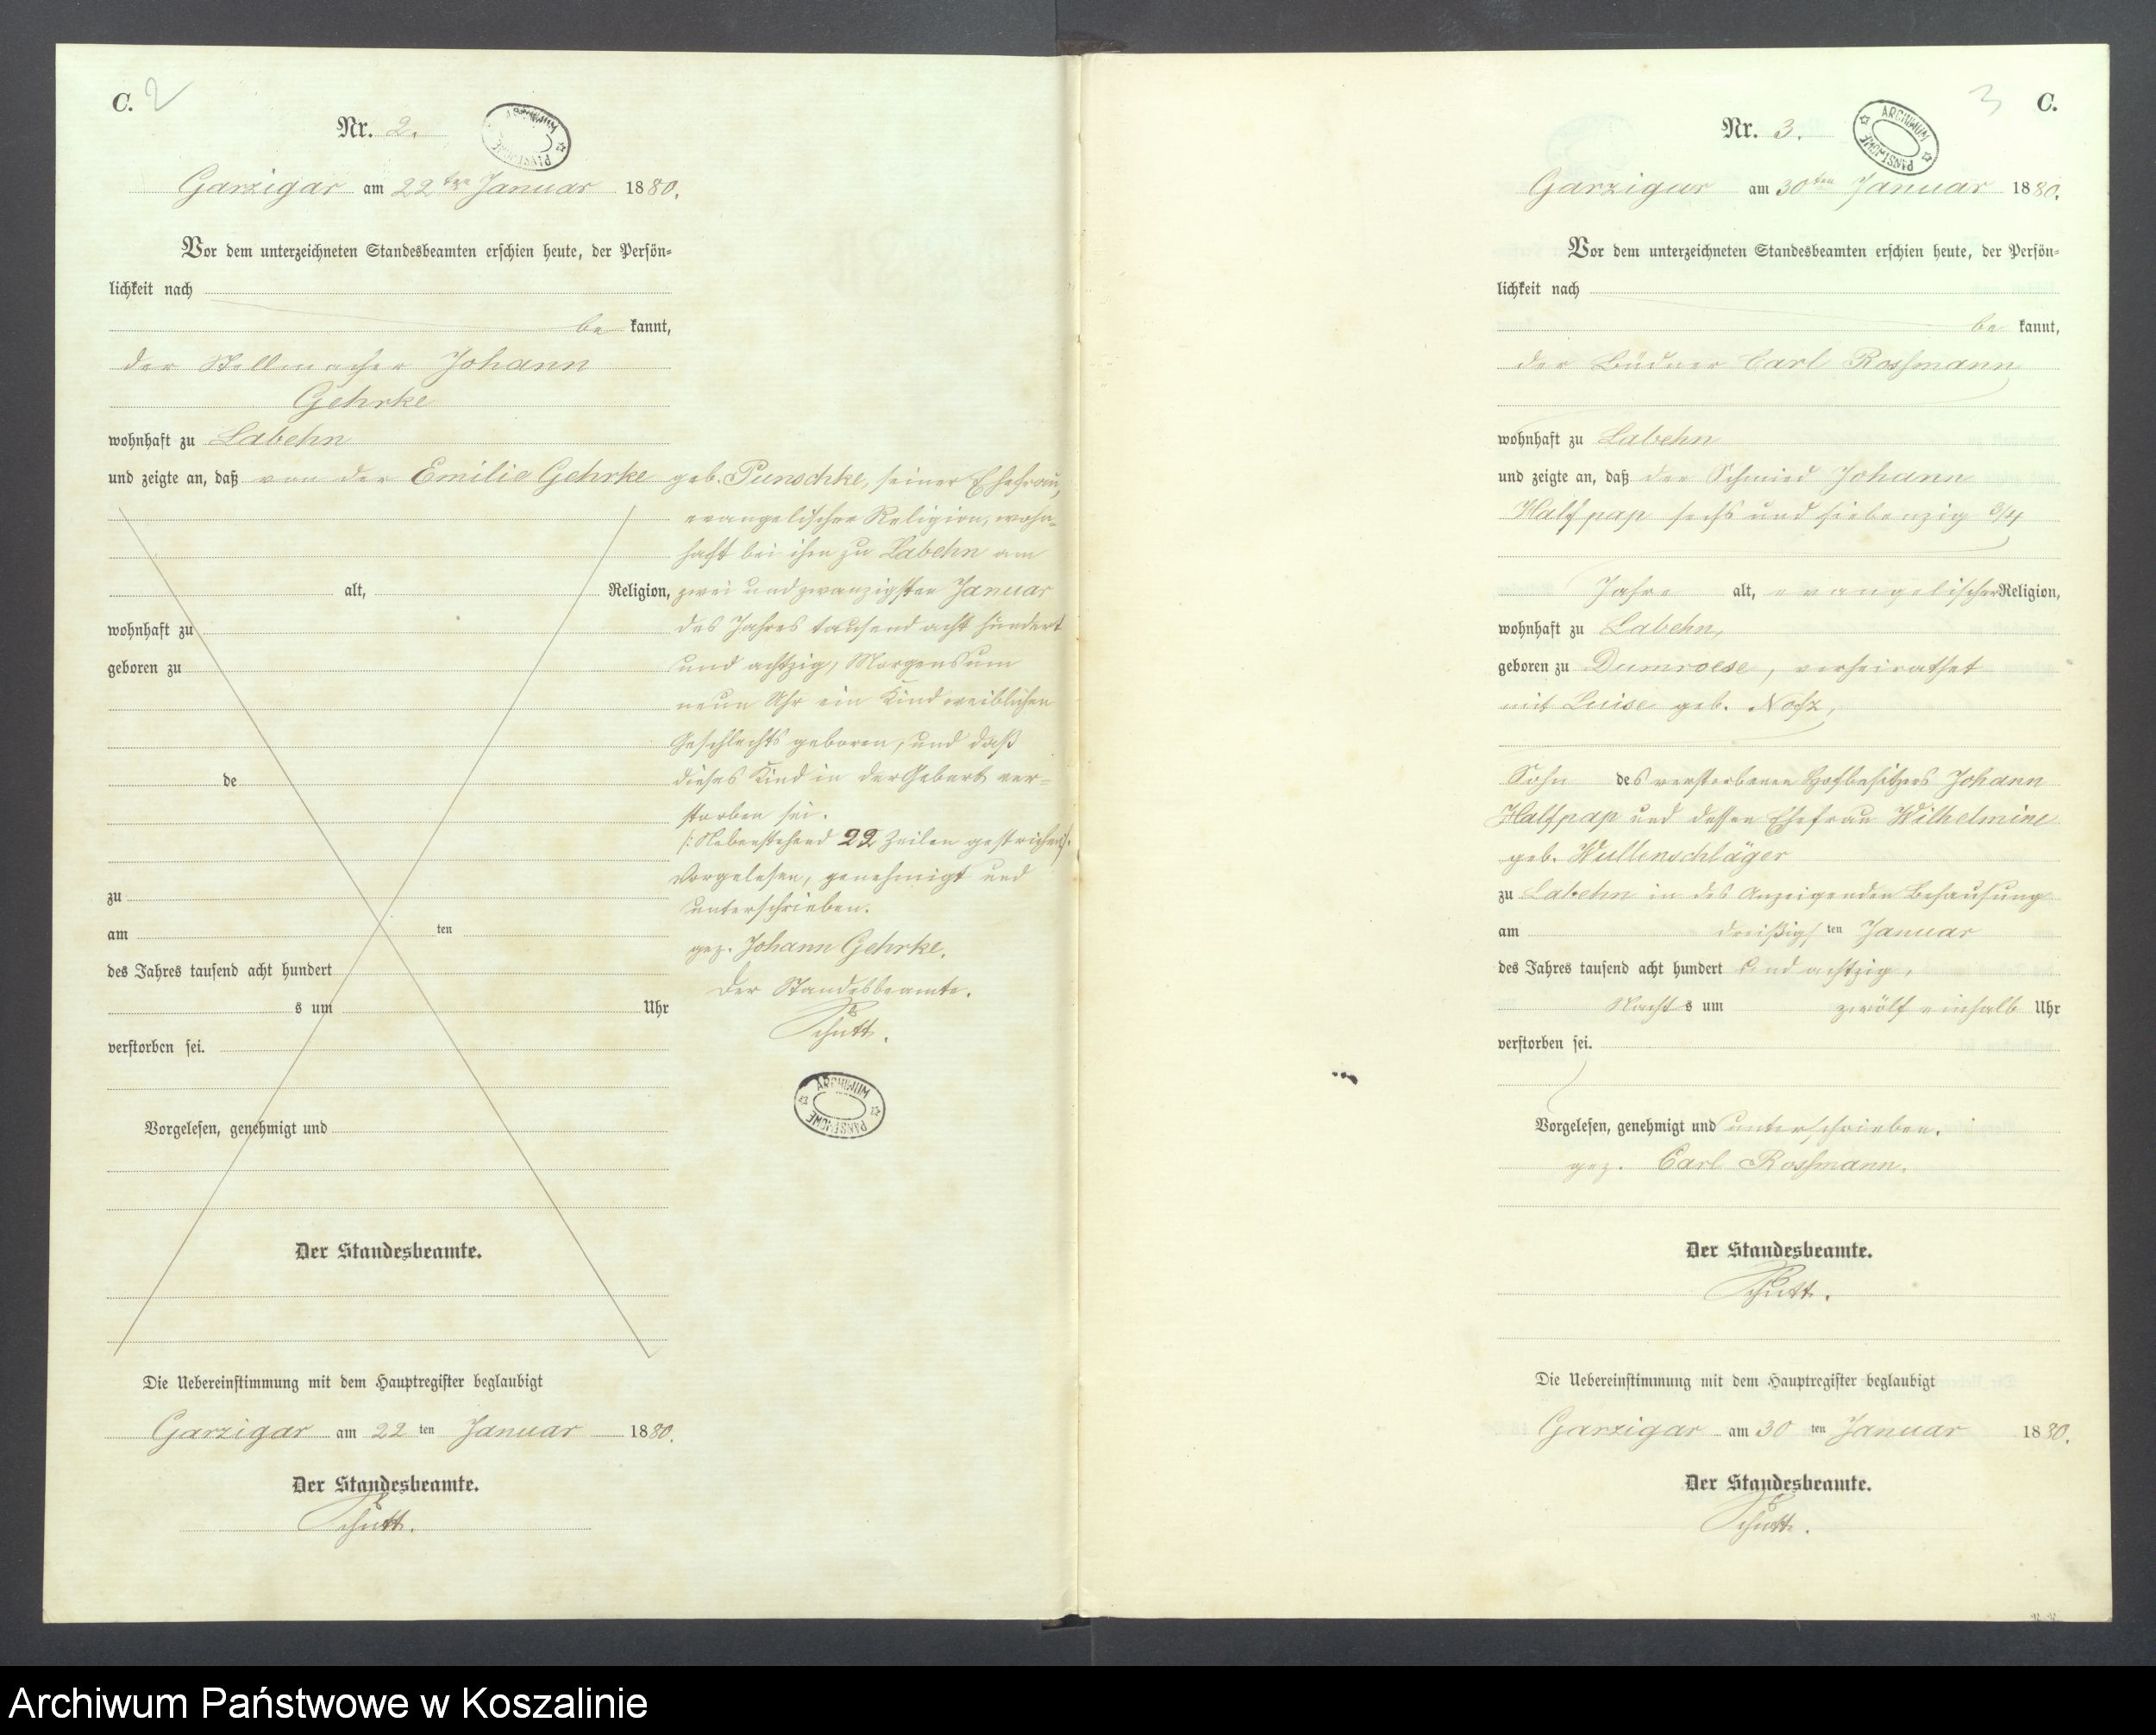 C. 2
Nr. 2.
ARCHIWUM PAŃSTWOWE
Garzigar am 22ten Januar 1880.
Vor dem unterzeichneten Standesbeamten erschien heute, der Persön=
lichkeit nach
be kannt,
der Stellmacher Johann
Gehrke
wohnhaft zu Labehn
und zeigte an, daß von der Emilie Gehrke geb. Punschke, seiner Ehefrau,
evangelischer Religion, wohn-
haft bei ihm zu Labehn am
alt, Religion, zwei und zwanzigsten Januar
wohnhaft zu des Jahres tausend acht hundert
geboren zu und achtzig, Morgens um
neun Uhr ein Kind weiblichen
Geschlechts geboren, und daß
de dieses Kind in der Geburt ver-
storben sei.
(: Nebenstehend 22 Zeilen gestrichen :).
Vorgelesen, genehmigt und
zu unterschrieben.
am ten gez. Johann Gehrke.
des Jahres tausend acht hundert Der Standesbeamte.
s um Uhr Schutt.
verstorben sei.
ARCHIWUM PAŃSTWOWE
Vorgelesen, genehmigt und
Der Standesbeamte.
Die Uebereinstimmung mit dem Hauptregister beglaubigt
Garzigar am 22 ten Januar 1880.
Der Standesbeamte.
Schutt.
3 C.
Nr. 3.
ARCHIWUM PAŃSTWOWE
Garzigar am 30ten Januar 1880.
Vor dem unterzeichneten Standesbeamten erschien heute, der Persön=
lichkeit nach
be kannt,
der Büdner Carl Roshmann
wohnhaft zu Labehn
und zeigte an, daß der Schmied Johann
Halfpap sechs und siebenzig 3/4
Jahre alt, evangelischer Religion,
wohnhaft zu Labehn,
geboren zu Dumroese, verheirathet
mit Luise geb.
Sohn des verstorbenen Hofbesitzers Johann
Halfpap und dessen Ehefrau Wilhelmine
geb. Wullenschläger
zu Labehn in des Anzeigenden Behausung
am dreißigsten Januar
des Jahres tausend acht hundert und achtzig,
Nachts um zwölf einhalb Uhr
verstorben sei.
Vorgelesen, genehmigt und unterschrieben.
gez. Carl Roshmann.
Der Standesbeamte.
Schutt.
Die Uebereinstimmung mit dem Hauptregister beglaubigt
Garzigar am 30 ten Januar 1880.
Der Standesbeamte.
Schutt.
Archiwum Państwowe w Koszalinie